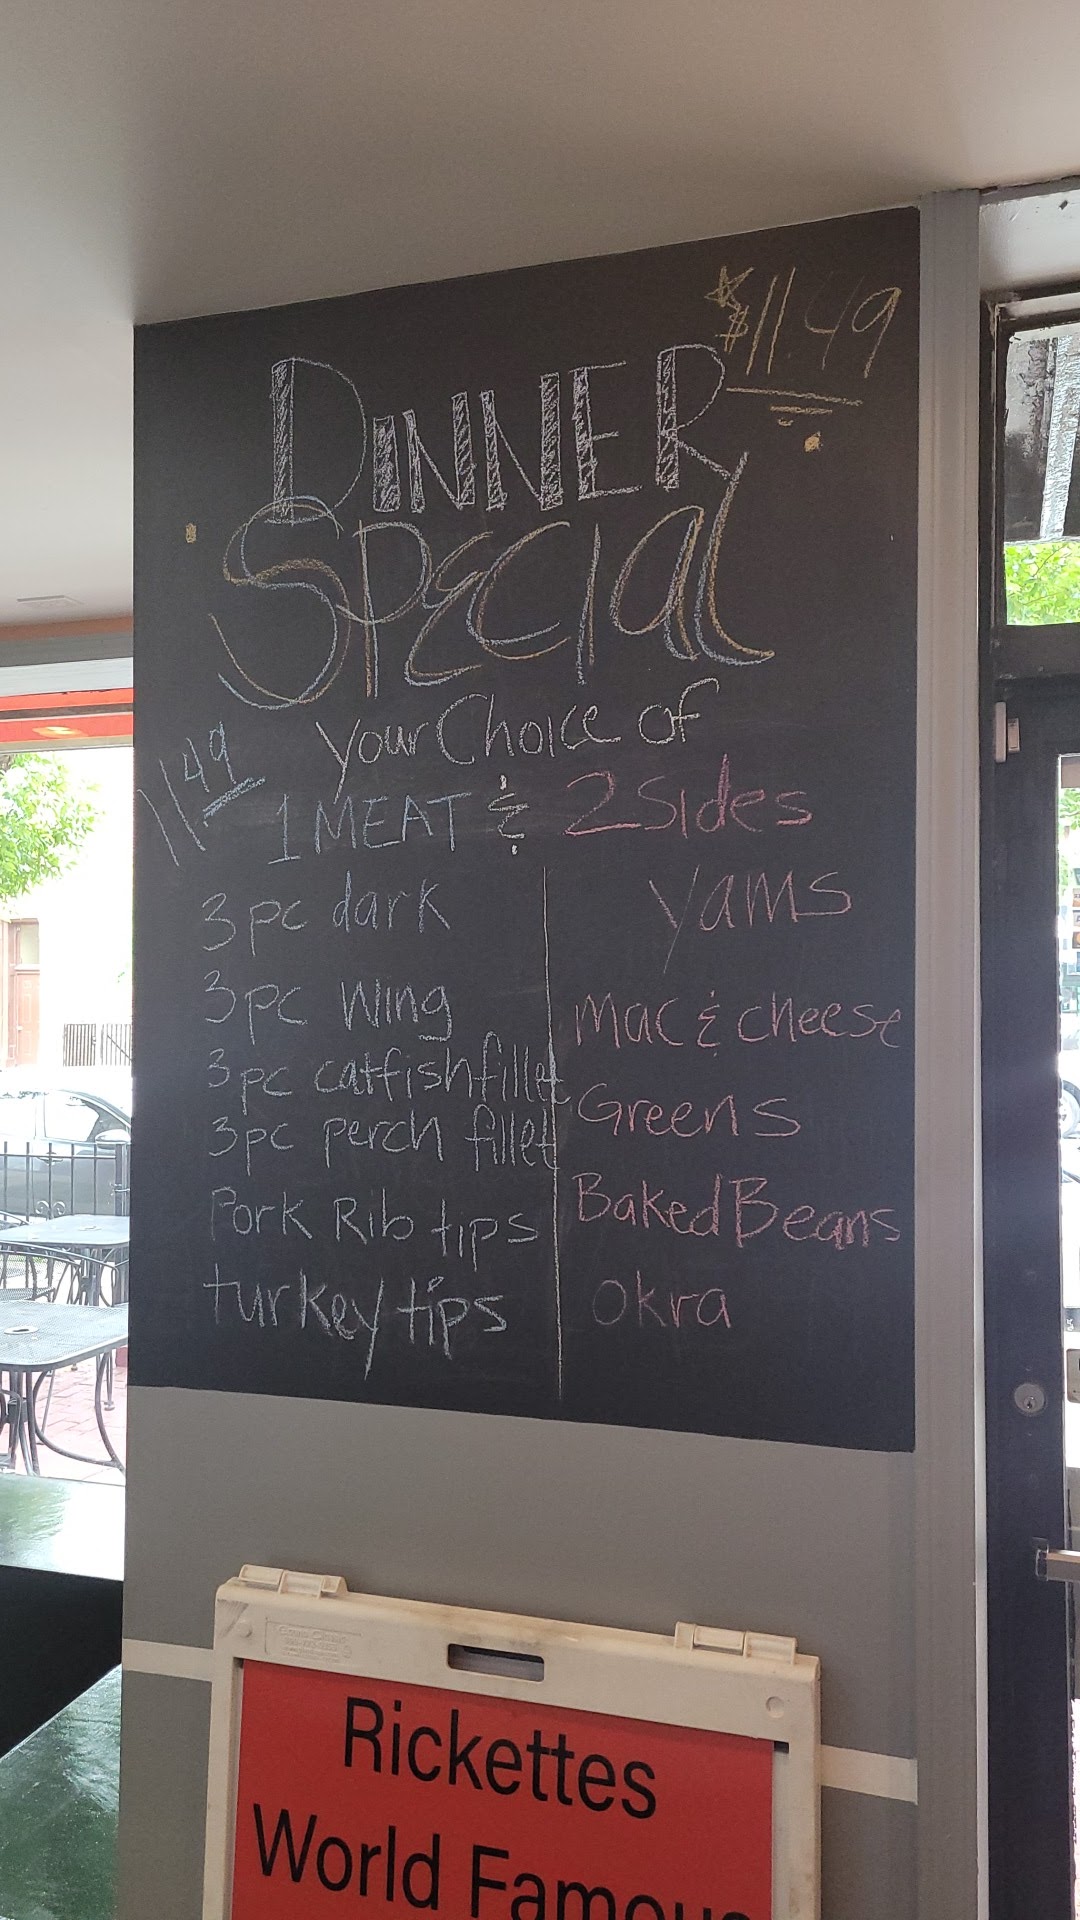 $11.49
DINNER
Special
your Choice of
11.49
1 MEAT & 2 Sides
3 pc dark
3 pc wing
3 pc catfish fillet
3 pc perch fillet
Pork Rib tips
turkey tips
yams
Mac & cheese
Greens
Baked Beans
okra
Rickettes
World Famous